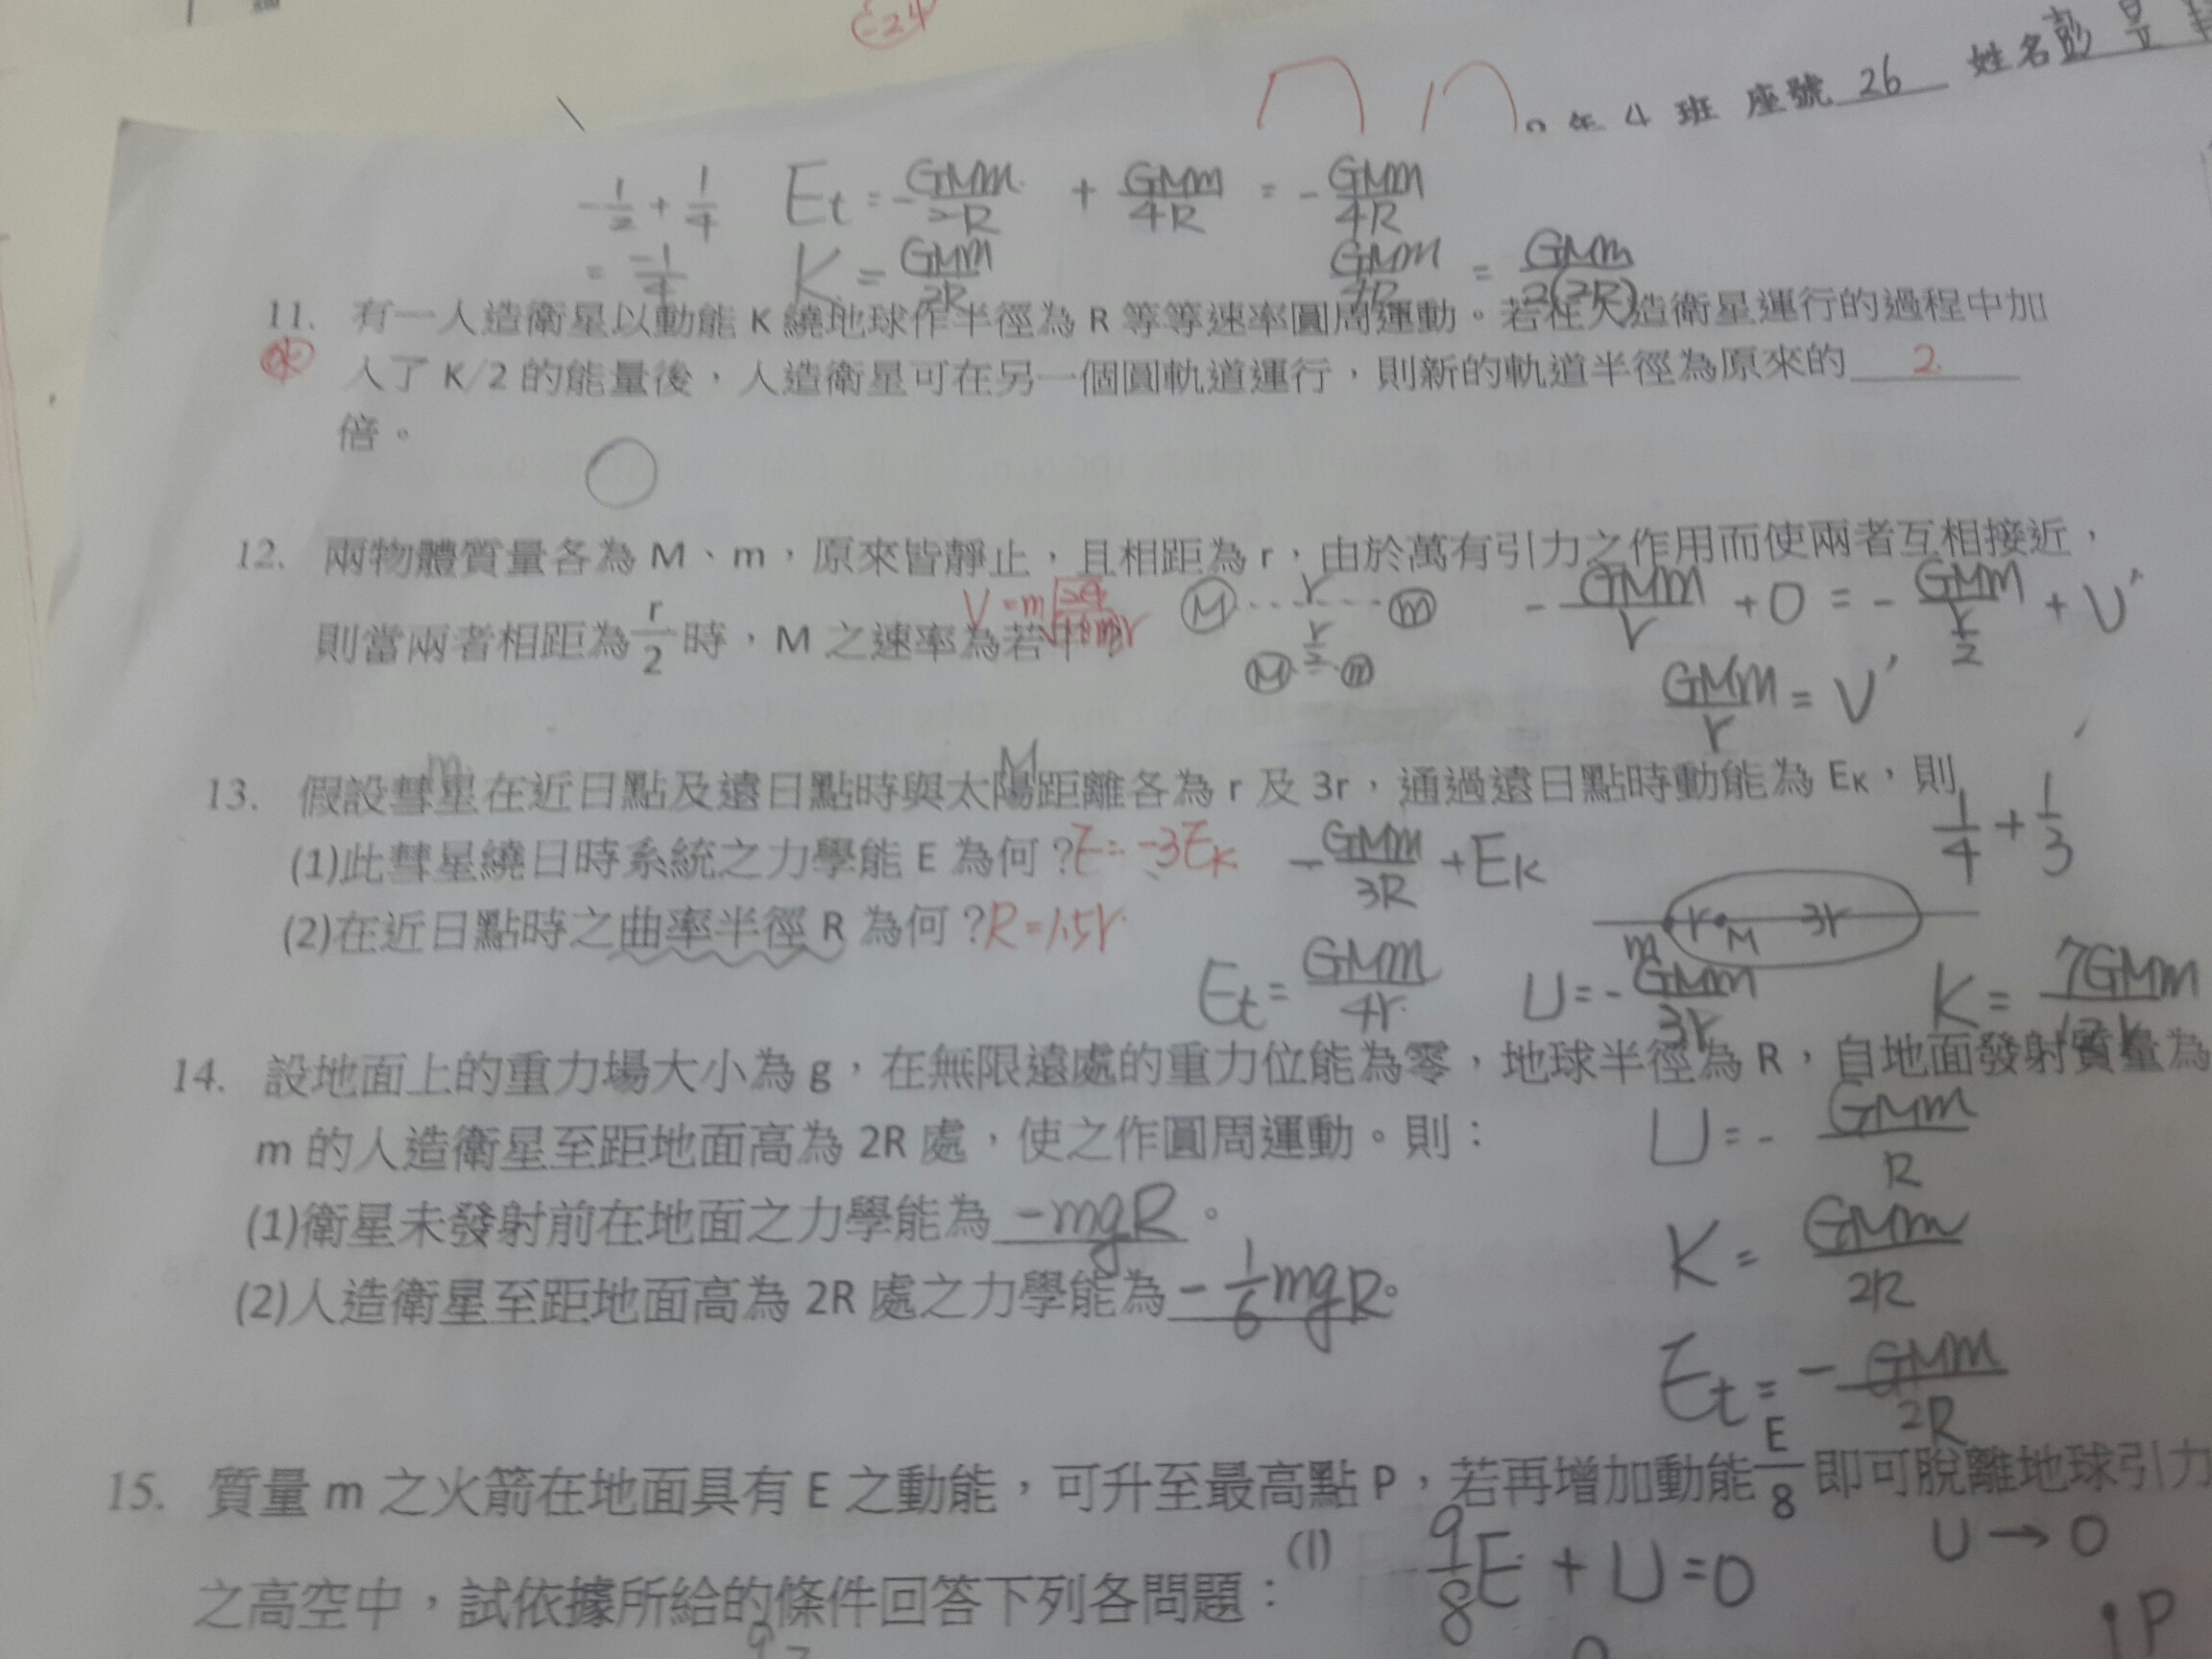 -24
年 4 班 座號 26 姓名 彭 昱
-1/2 + 1/4 Et = -GMm/2R + GMm/4R = -GMm/4R
= -1/4 K = GMm/2R GMm/4R = GMm/2(2R)
11. 有一人造衛星以動能 K 繞地球作半徑為 R 等等速率圓周運動。若在人造衛星運行的過程中加
入了 K/2 的能量後，人造衛星可在另一個圓軌道運行，則新的軌道半徑為原來的 2
倍。
12. 兩物體質量各為 M、m，原來皆靜止，且相距為 r，由於萬有引力之作用而使兩者互相接近，
M r m -GMm/r + 0 = -GMm/(r/2) + V'
則當兩者相距為 r/2 時，M 之速率為若
M r/2 m
GMm/r = V'
m M
13. 假設彗星在近日點及遠日點時與太陽距離各為 r 及 3r，通過遠日點時動能為 EK，則
(1)此彗星繞日時系統之力學能 E 為何？E = -3EK -GMm/3R + EK 1/4 + 1/3
(2)在近日點時之曲率半徑 R 為何？R = 1.5r
r M 3r m
Et = GMm/4r U = -GMm/3r K = 7GMm
14. 設地面上的重力場大小為 g，在無限遠處的重力位能為零，地球半徑為 R，自地面發射質量為
m 的人造衛星至距地面高為 2R 處，使之作圓周運動。則：
U = -GMm/R
(1)衛星未發射前在地面之力學能為 -mgR 。
K = GMm/2R
(2)人造衛星至距地面高為 2R 處之力學能為 -1/6 mgR 。
Et = -GMm/2R
15. 質量 m 之火箭在地面具有 E 之動能，可升至最高點 P，若再增加動能 E/8 即可脫離地球引力
之高空中，試依據所給的條件回答下列各問題：
(1) 9/8 E + U = 0 U → 0
P